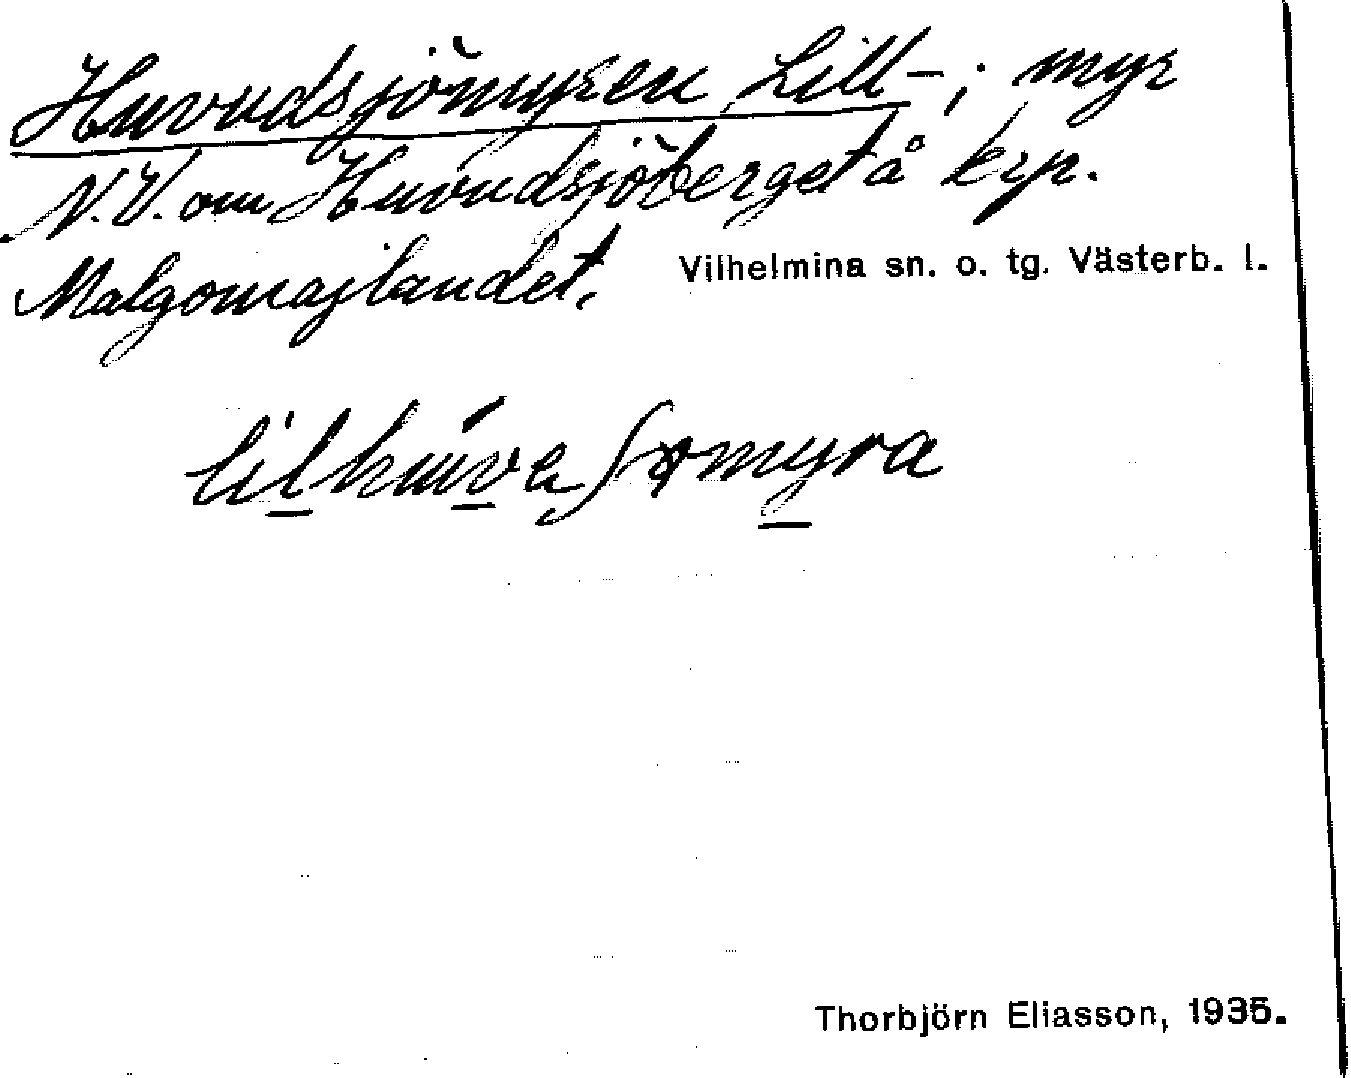 Huvudsjömyren, Lill-; myr
N.V. om Huvudsjöberget å krp.
Malgomajlandet.
Vilhelmina sn. o. tg. Västerb. l.
Thorbjörn Eliasson, 1935.